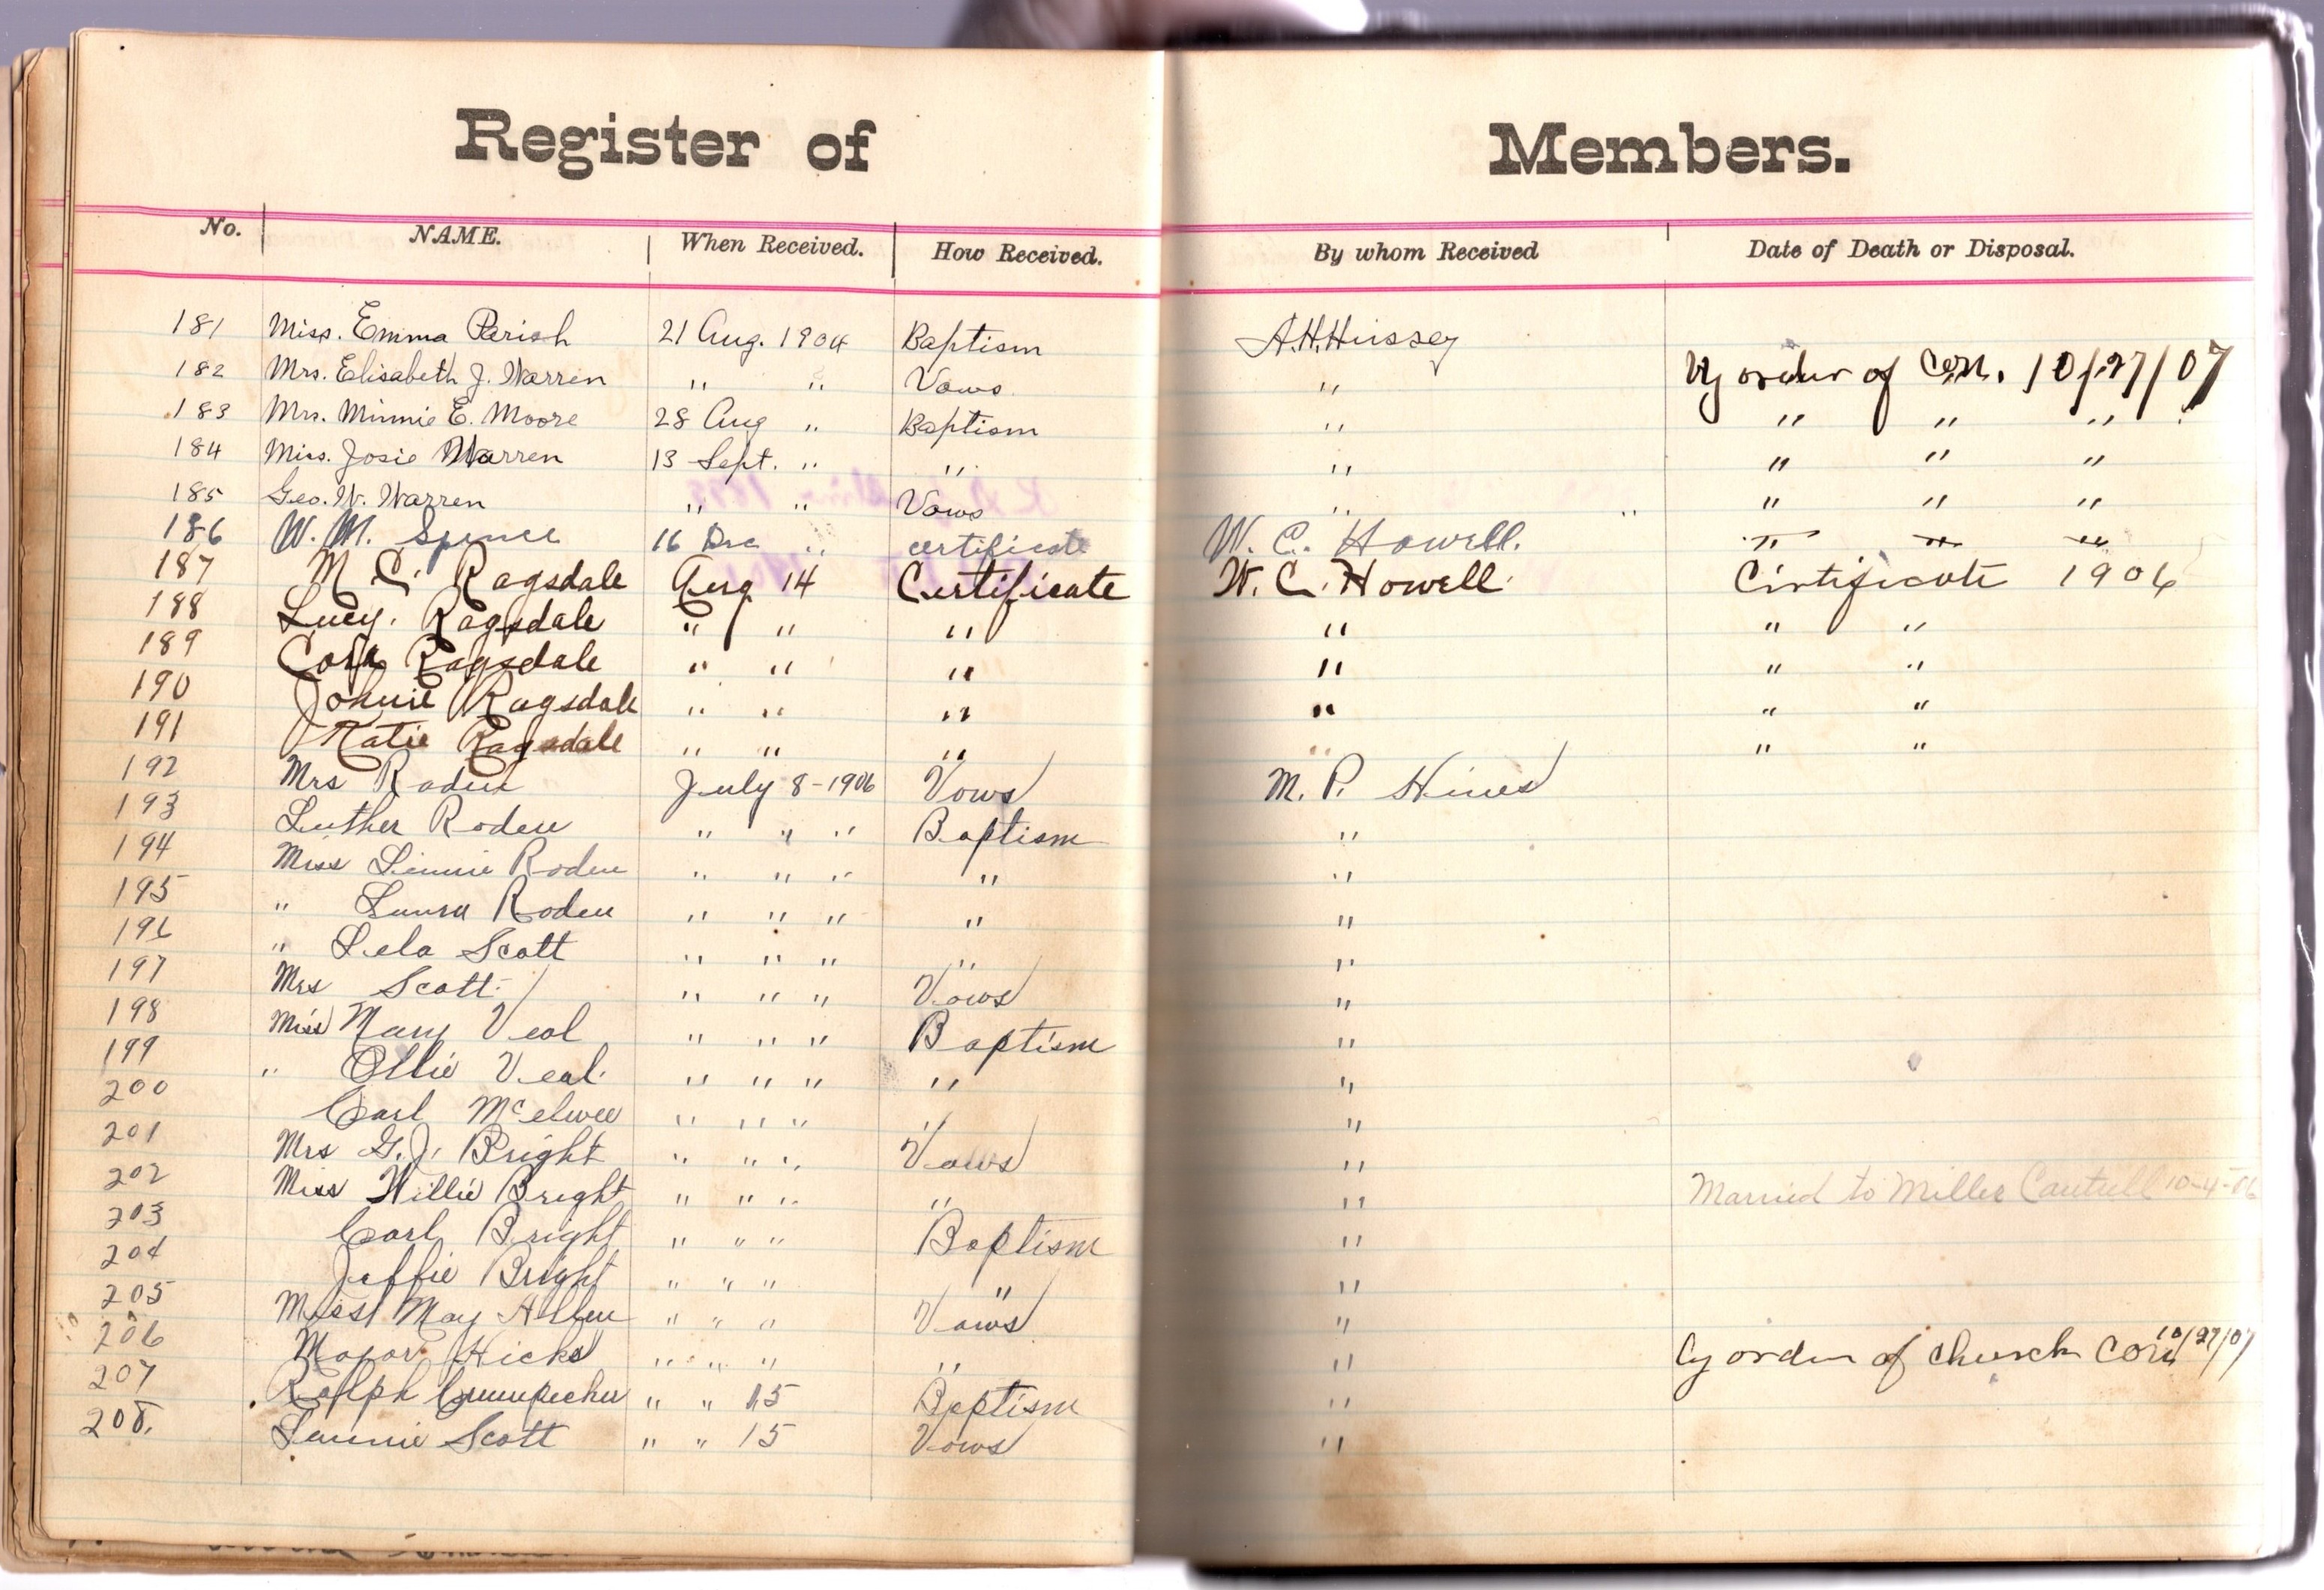 Register of Members.
No. NAME. When Received. How Received. By whom Received Date of Death or Disposal.
181 Miss. Emma Parish 21 Aug. 1904 Baptism A.H.Hussey
182 Mrs. Elisabeth J. Warren " " Vows " By order of Con. 10/27/07
183 Mrs. Minnie E. Moore 28 Aug " Baptism " " " "
184 Miss. Josie Warren 13 Sept. " " " " " "
185 Geo. W. Warren " " Vows " " " " "
186 W. M. Spence 16 Dec " certificate W. C. Howell. " " "
187 M. C. Ragsdale Aug 14 Certificate W. C. Howell. Certificate 1906
188 Lucy. Ragsdale " " " " " "
189 Cora Ragsdale " " " " " "
190 Johnie Ragsdale " " " " " "
191 Katie Ragsdale " " " " " "
192 Mrs Roden July 8-1906 Vows M. P. Hines
193 Luther Roden " " " Baptism "
194 Miss Linnie Roden " " " " "
195 " Laura Roden " " " " "
196 " Lela Scott " " " " "
197 Mrs Scott " " " Vows "
198 Miss Mary Veal " " " Baptism "
199 " Ollie Veal. " " " " "
200 Carl McElwee " " " " "
201 Mrs G. J. Bright " " " Vows "
202 Miss Willie Bright " " " " " Married to Miller Cantrell 10-4-06
203 Carl Bright " " " Baptism "
204 Jeffie Bright " " " " "
205 Miss May Allen " " " Vows "
206 Major Hicks " " " " " By order of Church Con 10/27/07
207 Ralph " " 15 Baptism "
208. Lennie Scott " " 15 Vows "